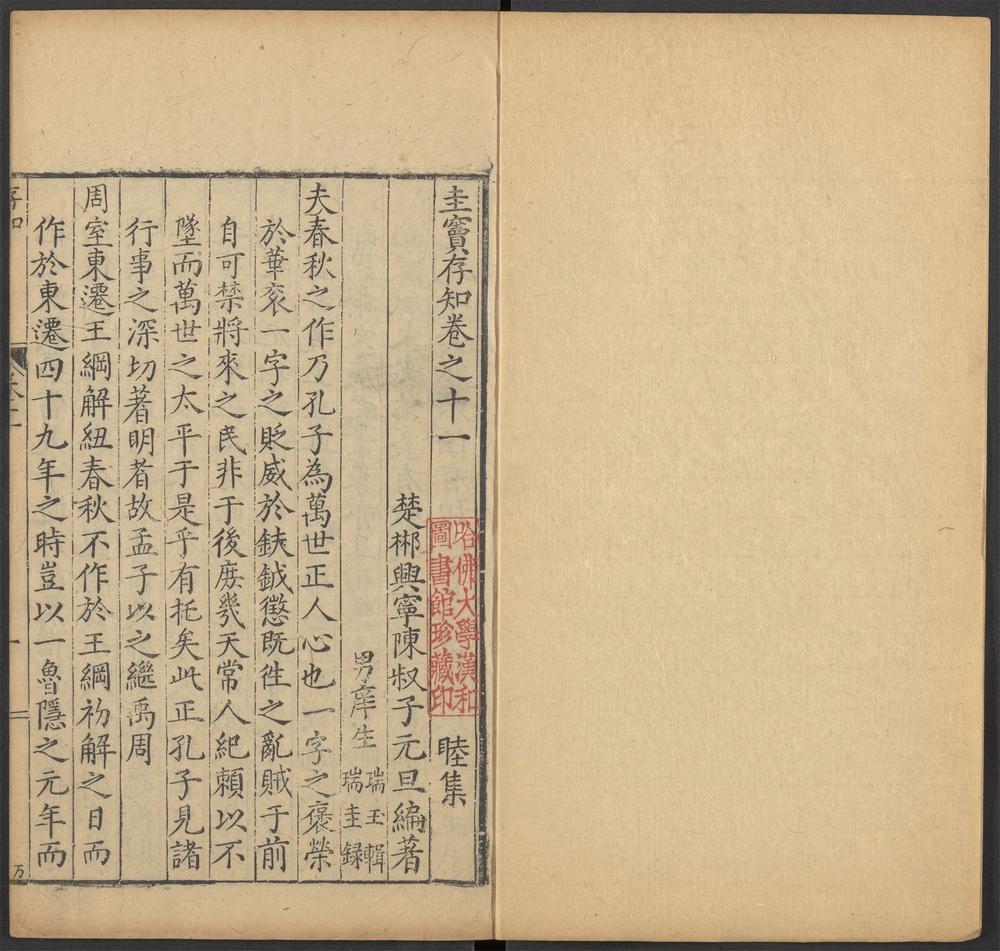 圭竇存知卷之十一
睦集
哈佛大學漢和
圖書館珍藏印
楚郴興寧陳叔子元旦編著
男庠生
瑞玉輯
瑞圭録
夫春秋之作乃孔子為萬世正人心也一字之褒榮
於華衮一字之貶威於鈇鉞懲既徃之亂賊于前
自可禁將來之民非于後庶㡬天常人紀賴以不
墜而萬世之太平于是乎有托矣此正孔子見諸
行事之深切著明者故孟子以之繼禹周
周室東遷王綱解紐春秋不作於王綱初解之日而
作於東遷四十九年之時豈以一魯隱之元年而
存知
卷十一
一